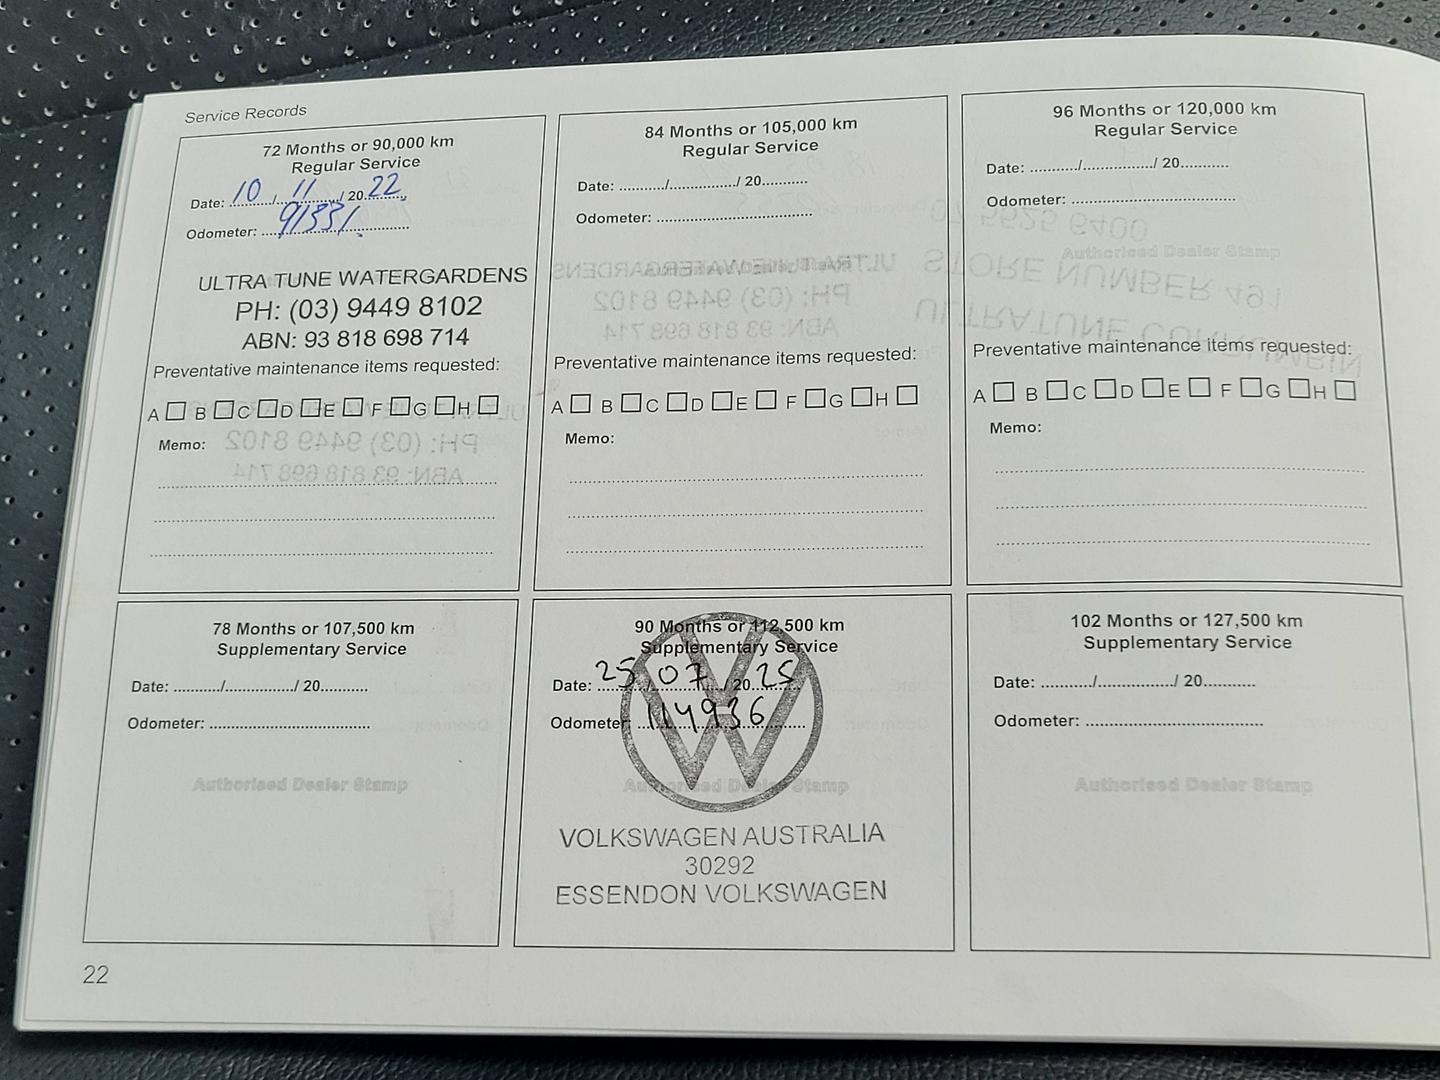 Service Records
72 Months or 90,000 km
Regular Service
Date: 10 / 11 / 20 22
Odometer: 91331
ULTRA TUNE WATERGARDENS
PH: (03) 9449 8102
ABN: 93 818 698 714
Preventative maintenance items requested:
A B C D E F G H
Memo:
84 Months or 105,000 km
Regular Service
Date: ........../................/ 20...........
Odometer: .......................................
Preventative maintenance items requested:
A B C D E F G H
Memo:
96 Months or 120,000 km
Regular Service
Date: ........../................/ 20...........
Odometer: .......................................
Authorised Dealer Stamp
Preventative maintenance items requested:
A B C D E F G H
Memo:
78 Months or 107,500 km
Supplementary Service
Date: ........../................/ 20...........
Odometer: .......................................
Authorised Dealer Stamp
90 Months or 112,500 km
Supplementary Service
Date: 25 / 07 / 20 25
Odometer: 114936
Authorised Dealer Stamp
VOLKSWAGEN AUSTRALIA
30292
ESSENDON VOLKSWAGEN
102 Months or 127,500 km
Supplementary Service
Date: ........../................/ 20...........
Odometer: .......................................
Authorised Dealer Stamp
22